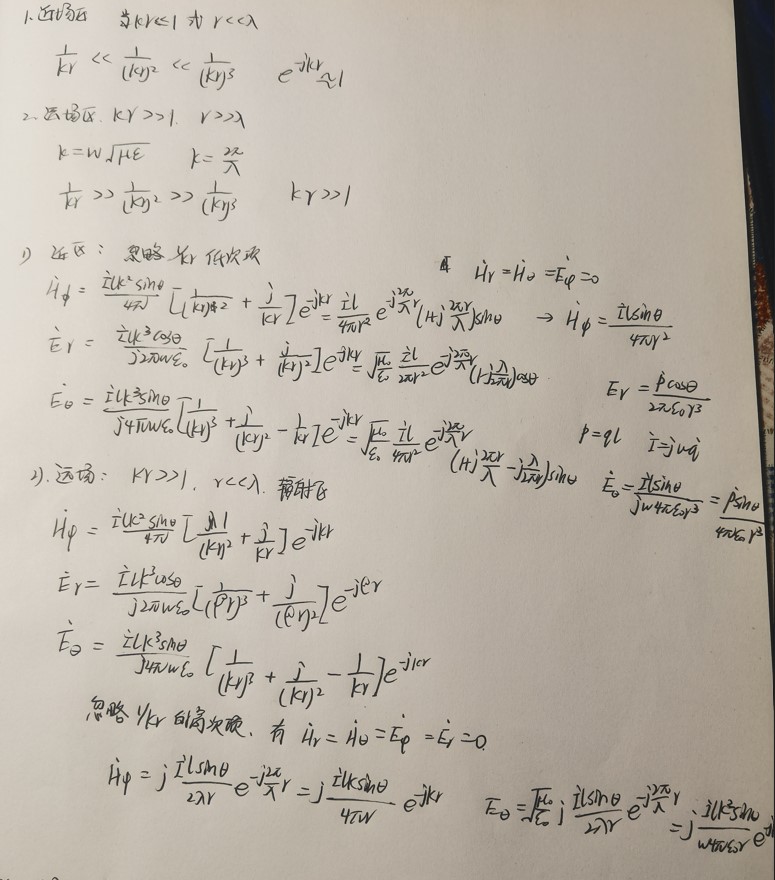 1. 近场区 当kr<<1 或 r<<λ
1/kr << 1/(kr)² << 1/(kr)³  e^{-jkr}≈1
2. 远场区. kr>>1. r>>λ
k=w√με  k=2π/λ
1/kr >> 1/(kr)² >> 1/(kr)³  kr>>1
1) 近区: 忽略 1/kr 低次项  Ḣr=Ḣθ=Ėφ=0
Ḣφ = İlk²sinθ/4π [1/(kr)² + j/kr] e^{-jkr} = İl/4πr² e^{-j2π/λ r}(1+j 2πr/λ)sinθ → Ḣφ = İlsinθ/4πr²
Ėr = İlk³cosθ/j2πwε₀ [1/(kr)³ + j/(kr)²] e^{-jkr} = √μ₀/ε₀ İl/2πr² e^{-j2π/λ r}(1-j λ/2πr)cosθ  Er = ṗcosθ/2πε₀r³
Ėθ = İlk³sinθ/j4πwε₀ [1/(kr)³ + j/(kr)² - 1/kr] e^{-jkr} = √μ₀/ε₀ İl/4πr² e^{-j2π/λ r}(1+j 2πr/λ - j λ/2πr)sinθ  p=ql  İ=jwq̇
Ėθ = İlsinθ/jw4πε₀r³ = ṗsinθ/4πε₀r³
2). 远场: kr>>1. r<<λ. 辐射区
Ḣφ = İlk²sinθ/4π [1/(kr)² + j/kr] e^{-jkr}
Ėr = İlk³cosθ/j2πwε₀ [1/(βr)³ + j/(βr)²] e^{-jβr}
Ėθ = İlk³sinθ/j4πwε₀ [1/(kr)³ + j/(kr)² - 1/kr] e^{-jkr}
忽略 1/kr 的高次项. 有 Ḣr=Ḣθ=Ėφ=Ėr=0.
Ḣφ = j İlsinθ/2λr e^{-j2π/λ r} = j İlksinθ/4πr e^{-jkr}
Ėθ = √μ₀/ε₀ j İlsinθ/2λr e^{-j2π/λ r} = j İlk²sinθ/w4πε₀r